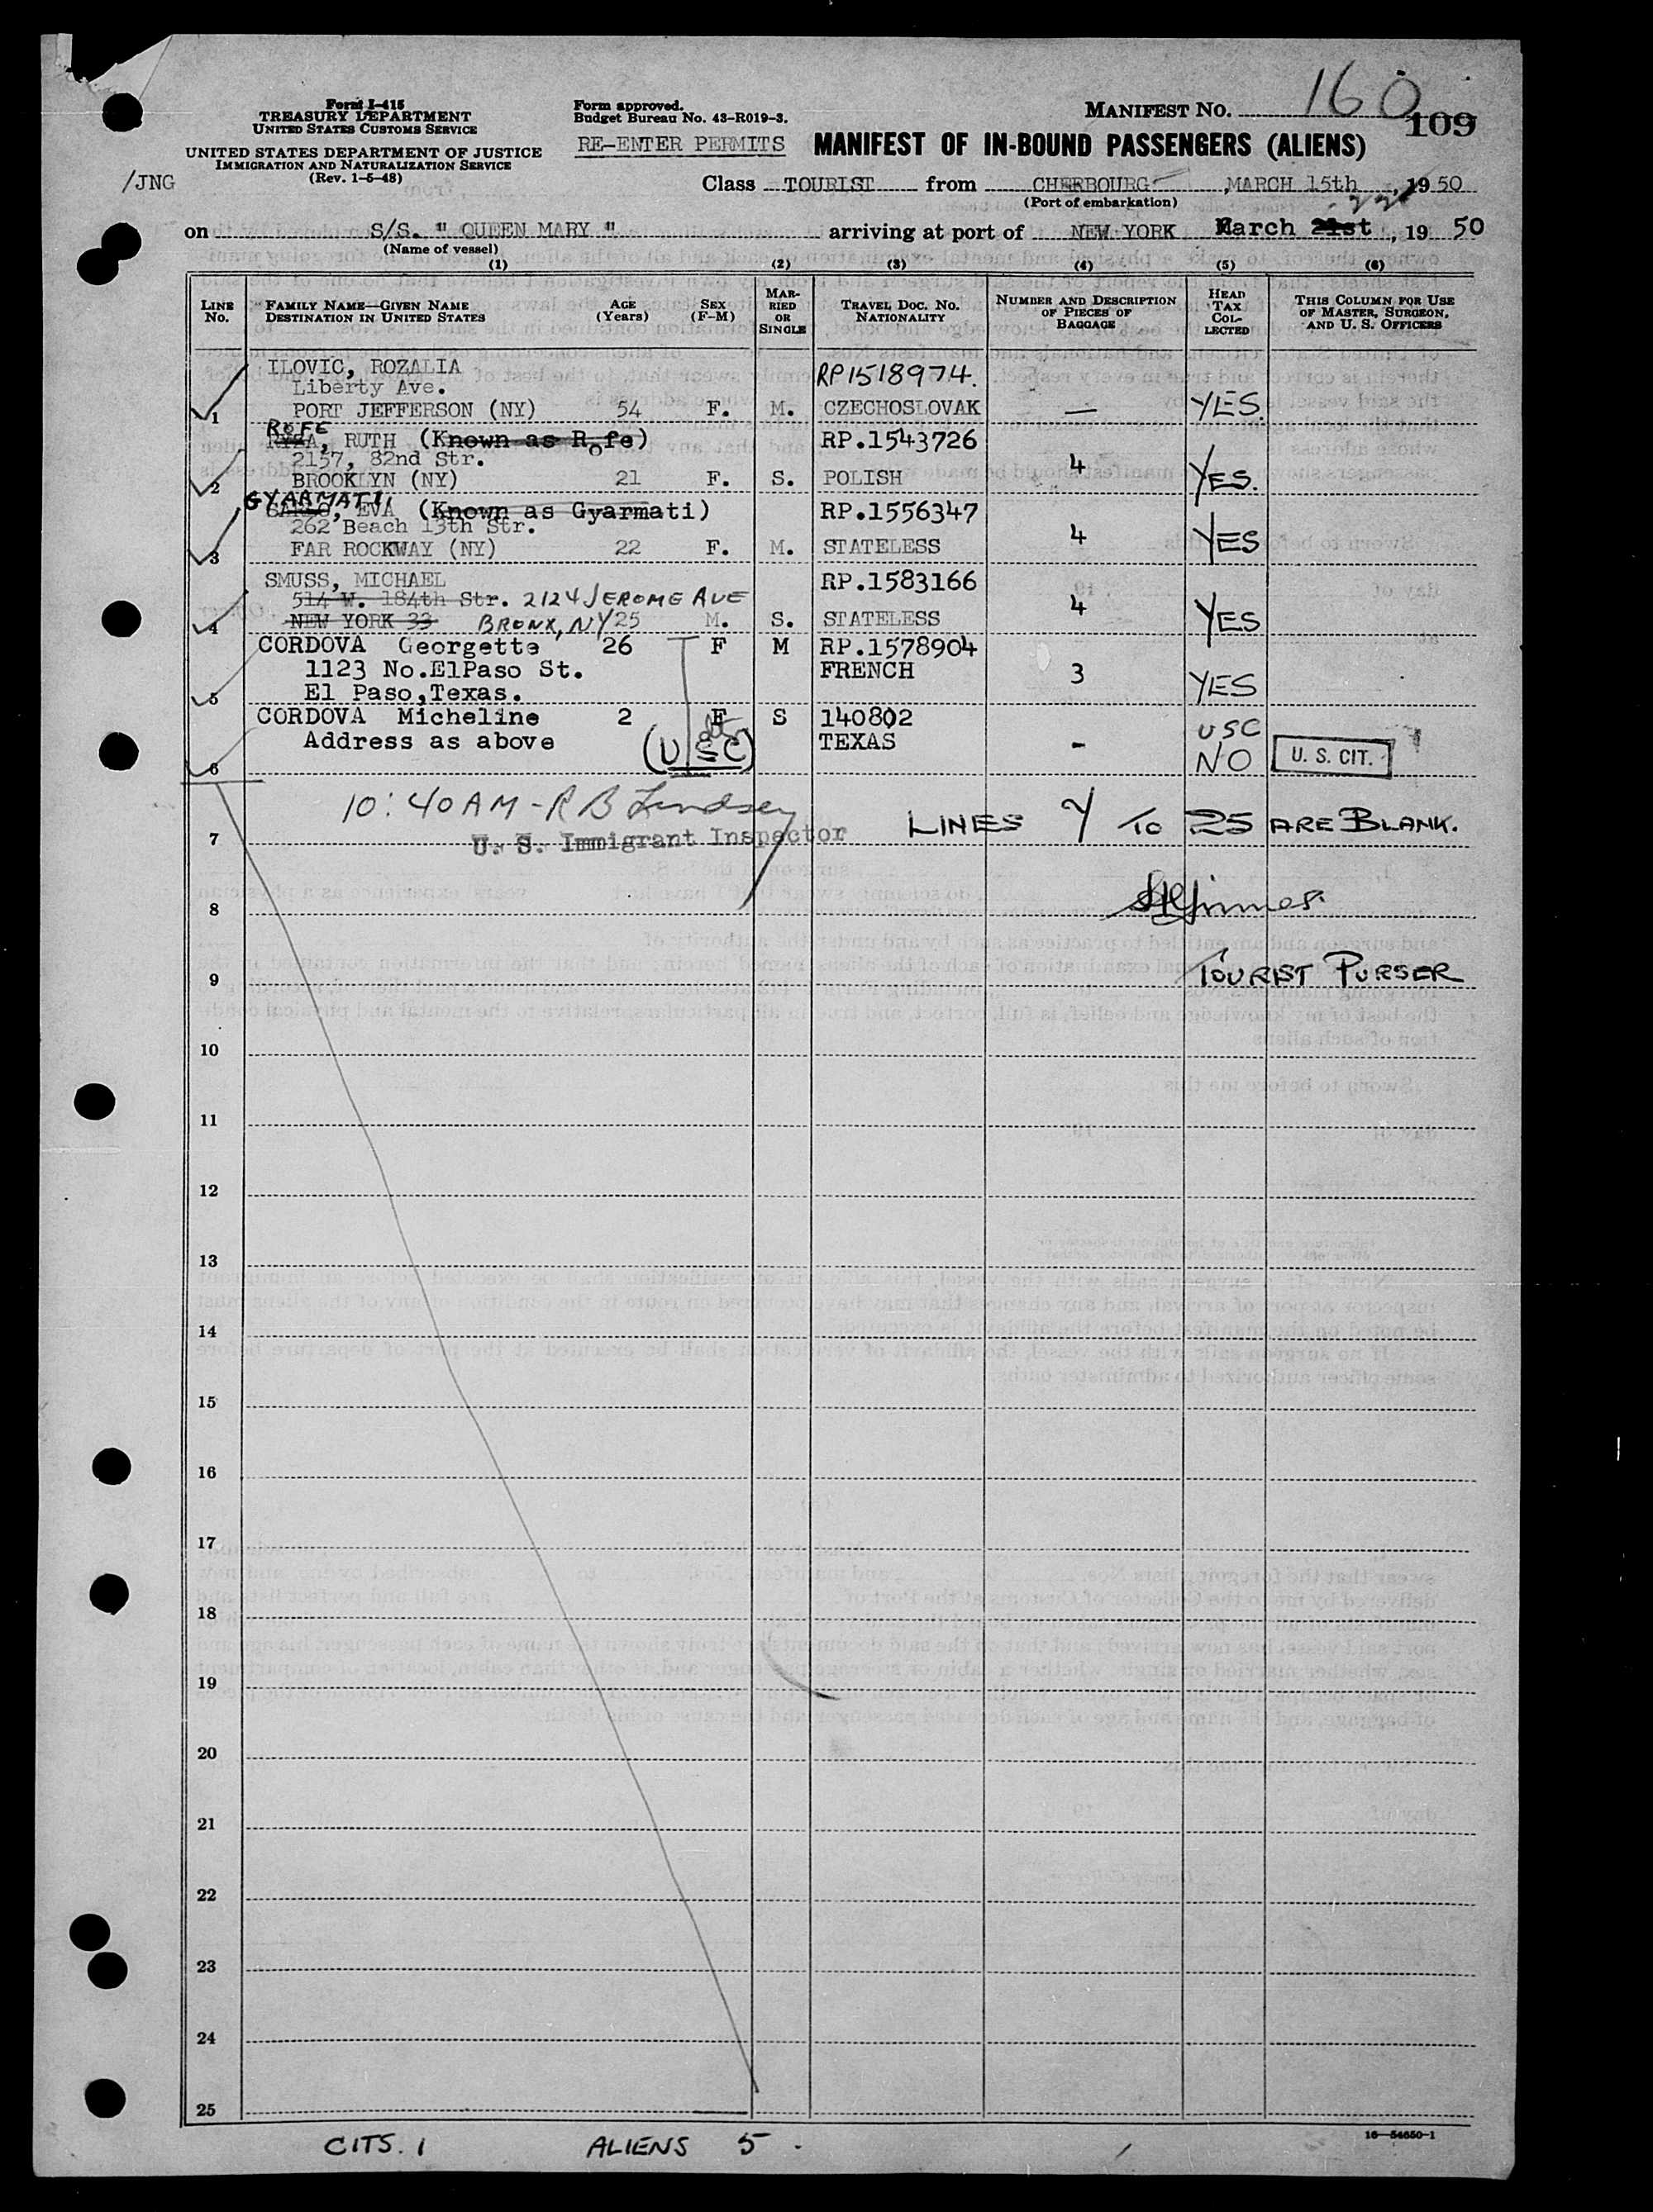 Form I-415
TREASURY DEPARTMENT
UNITED STATES CUSTOMS SERVICE
UNITED STATES DEPARTMENT OF JUSTICE
IMMIGRATION AND NATURALIZATION SERVICE
(Rev. 1-5-48)
/JNG
Form approved.
Budget Bureau No. 43-R019-3.
RE-ENTER PERMITS
MANIFEST NO. 160
109
MANIFEST OF IN-BOUND PASSENGERS (ALIENS)
Class TOURIST from CHERBOURG, MARCH 15th, 1950
(Port of embarkation)
on S/S. " QUEEN MARY " arriving at port of NEW YORK March 21st, 19 50
(Name of vessel)
(1) (2) (3) (4) (5) (6)
LINE No. FAMILY NAME—GIVEN NAME DESTINATION IN UNITED STATES AGE (Years) SEX (F-M) MARRIED OR SINGLE TRAVEL DOC. NO. NATIONALITY NUMBER AND DESCRIPTION OF PIECES OF BAGGAGE HEAD TAX COLLECTED THIS COLUMN FOR USE OF MASTER, SURGEON, AND U. S. OFFICERS
ILOVIC, ROZALIA RP1518974.
Liberty Ave.
1 PORT JEFFERSON (NY) 54 F. M. CZECHOSLOVAK — YES.
ROFE
RUTH (Known as Rofe) RP.1543726
2157, 82nd Str.
2 BROOKLYN (NY) 21 F. S. POLISH 4 YES.
GYARMATI,
EVA (Known as Gyarmati) RP.1556347
262 Beach 13th Str.
3 FAR ROCKWAY (NY) 22 F. M. STATELESS 4 YES
SMUSS, MICHAEL RP.1583166
514 W. 184th Str. 2124 JEROME AVE
4 NEW YORK 33 BRONX, NY 25 M. S. STATELESS 4 YES
CORDOVA Georgette 26 F M RP.1578904
1123 No.ElPaso St. FRENCH 3
5 El Paso,Texas. YES
CORDOVA Micheline 2 F S 140802 USC
Address as above (USC) TEXAS - NO U. S. CIT.
6
10:40 AM - R B Lindsey
7 U. S. Immigrant Inspector LINES 7 TO 25 ARE BLANK.
8
9 TOURIST PURSER
10
11
12
13
14
15
16
17
18
19
20
21
22
23
24
25
16—54650-1
CITS. 1 ALIENS 5.